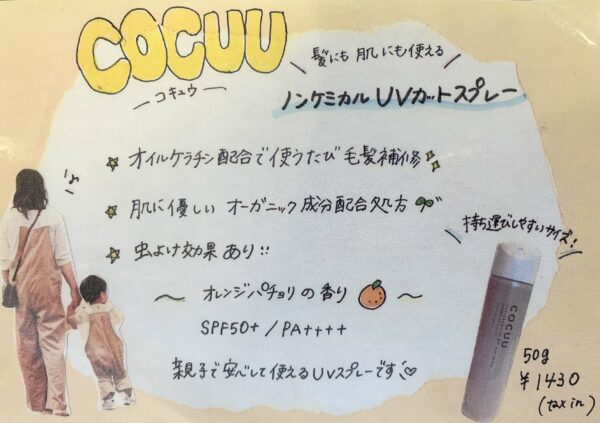 COCUU
髪にも肌にも使える
コキュウ
ノンケミカルUVカットスプレー
オイルケラチン配合で使うたび毛髪補修
肌に優しいオーガニック成分配合処方
虫よけ効果あり!!
持ち運びしやすいサイズ!
〜オレンジパチョリの香り〜
SPF50+/PA++++
親子で安心して使えるUVスプレーです
COCUU
50g
¥1430
(tax in)